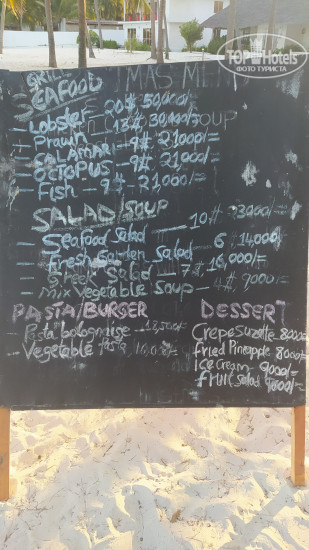 TopHotels
ФОТО ТУРИСТА
GRILL
MAS MENU
SEAFOOD
- Lobster 20$ 50,000/=
- Prawn - 13$ 30,000/=
- CALAMARI - 9$ - 21000/=
- OCTOPUS - 9$ - 21000/=
- Fish - 9$ - 21,000/=
SOUP
SALAD/SOUP
- Seafood Salad - 10$ 23000/=
- Fresh Garden Salad - 6$ 14,000/=
- Greek Salad - 7$ 16,000/=
- Mix Vegetable Soup - 4$ 9000/=
PASTA/BURGER
- Pasta bolognaise - 12,500/=
- Vegetable Pasta 10,000/=
DESSERT
Crepe Suzette 8000/=
fried Pineapple 8000/=
ice Cream 9000/=
fruit Salad